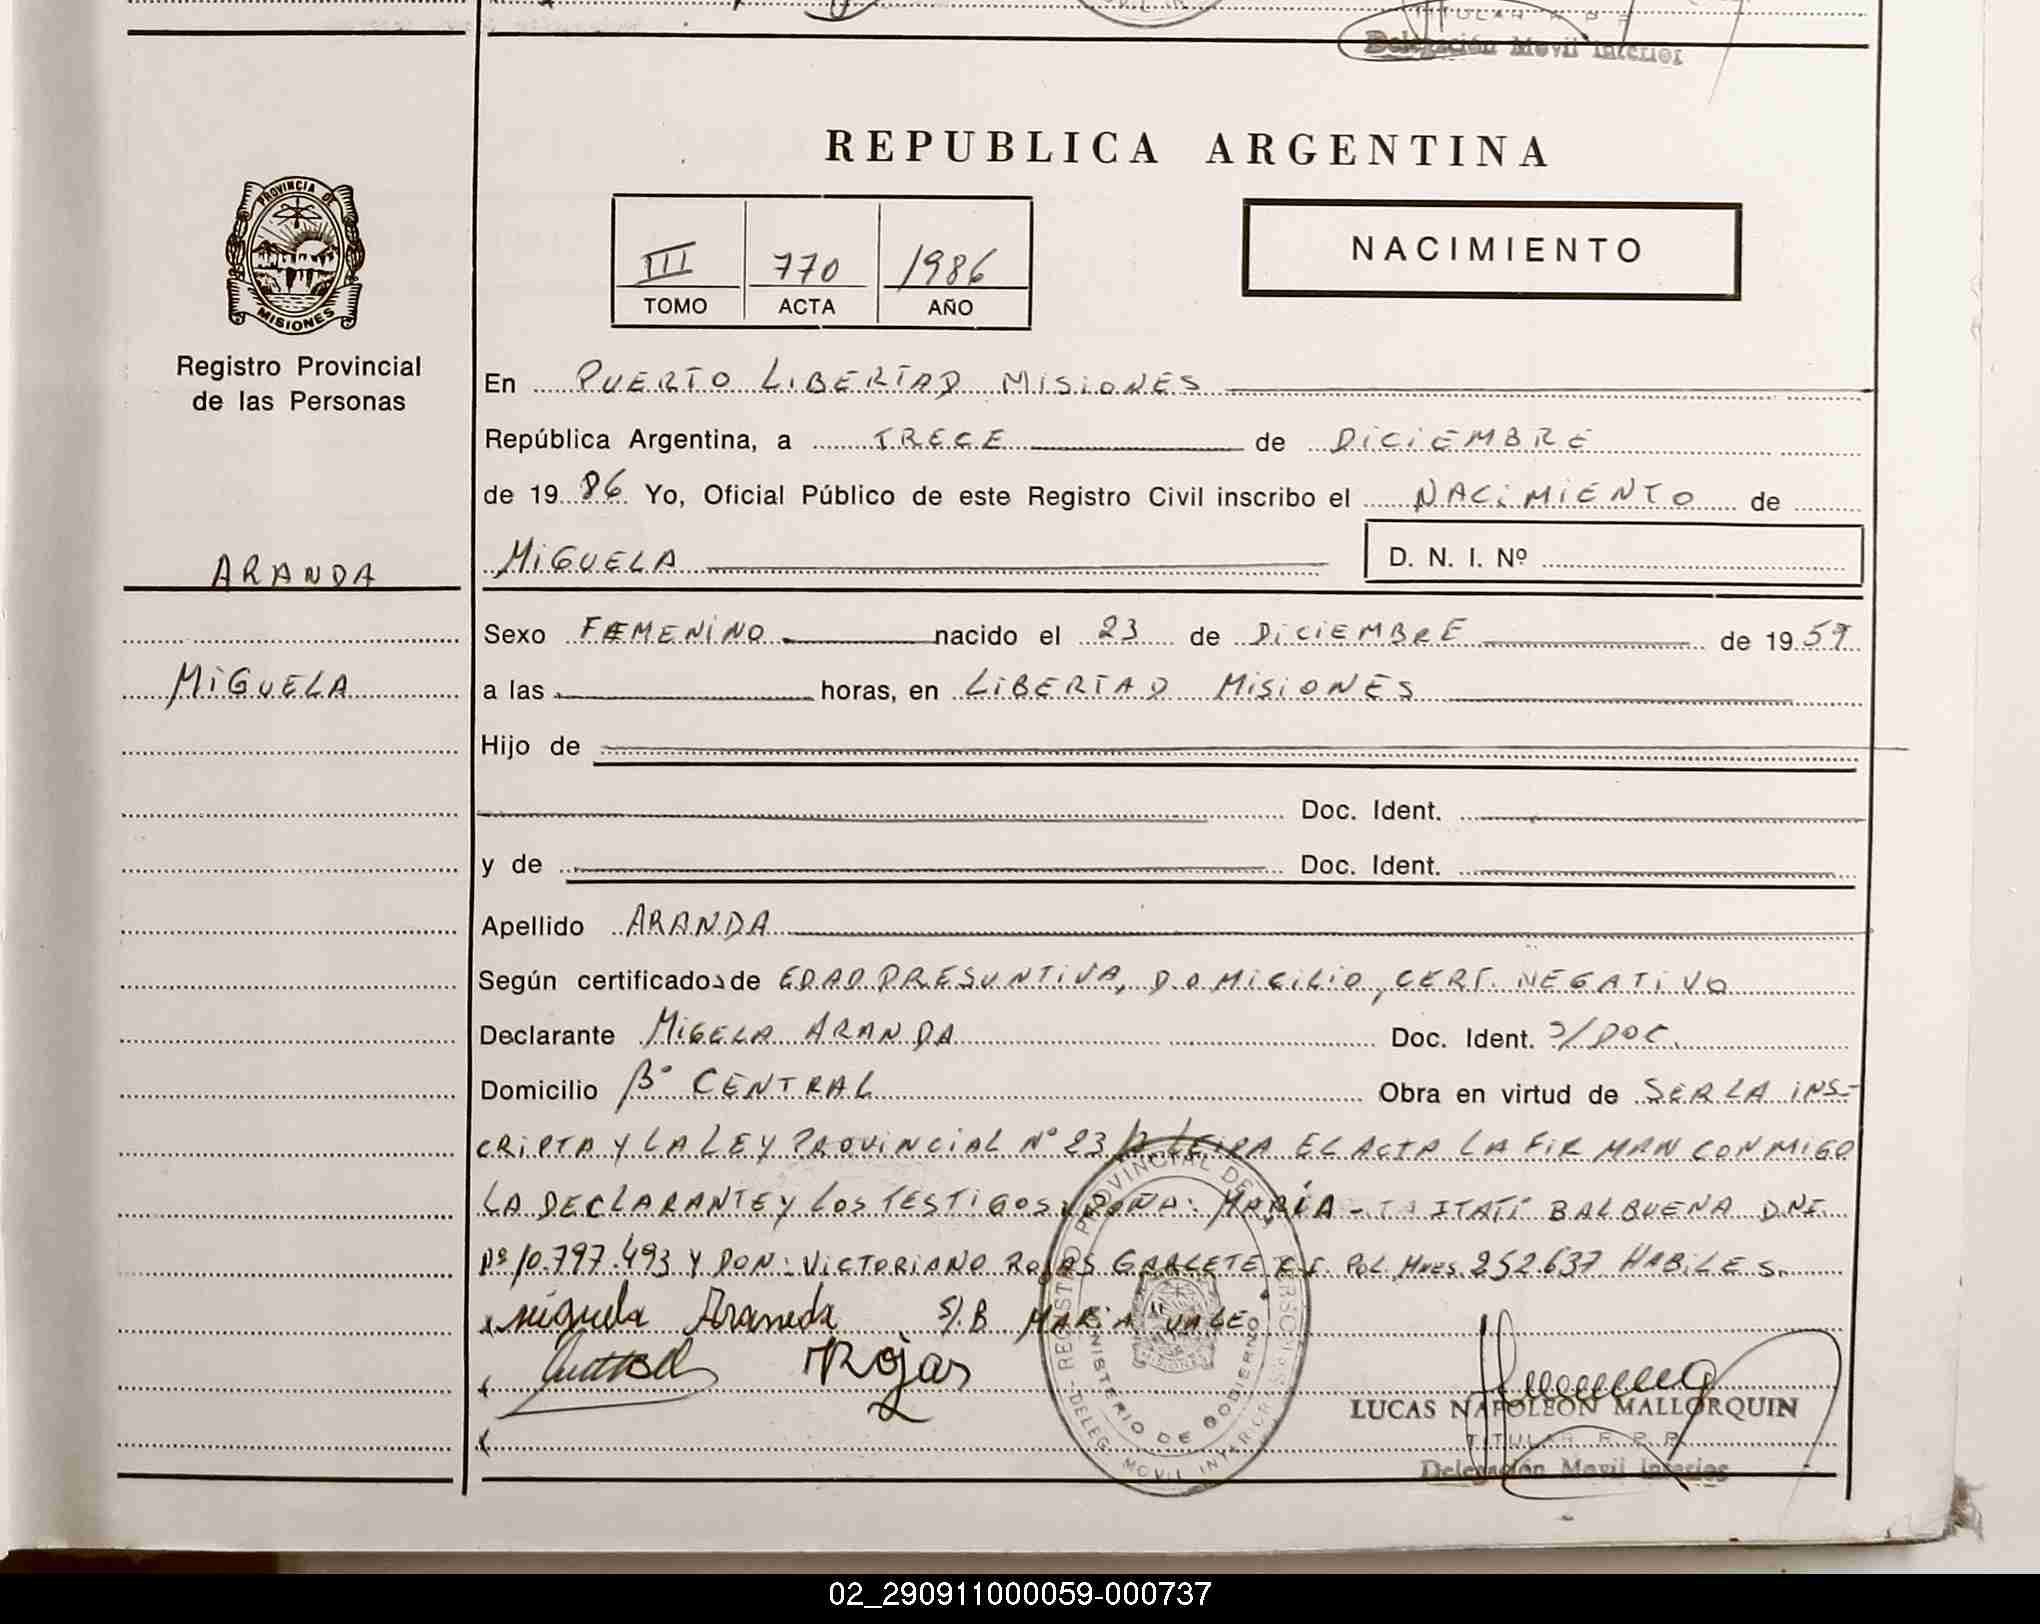 Delegación Movil Interior
REPUBLICA ARGENTINA
PROVINCIA DE
MISIONES
III 770 1986
TOMO ACTA AÑO
NACIMIENTO
Registro Provincial
de las Personas
En PUERTO LIBERTAD MISIONES
República Argentina, a TRECE de DICIEMBRE
de 19 86 Yo, Oficial Público de este Registro Civil inscribo el NACIMIENTO de
ARANDA
MIGUELA D. N. I. Nº
Sexo FEMENINO nacido el 23 de DICIEMBRE de 19 59
MIGUELA
a las horas, en LIBERTAD MISIONES
Hijo de
Doc. Ident.
y de Doc. Ident.
Apellido ARANDA
Según certificados de EDAD PRESUNTIVA, DOMICILIO, CERT. NEGATIVO
Declarante MIGELA ARANDA Doc. Ident. S/DOC.
Domicilio Bº CENTRAL Obra en virtud de SER LA INS-
CRIPTA Y LA LEY PROVINCIAL Nº 23 LEIDA EL ACTA LA FIRMAN CONMIGO
LA DECLARANTE Y LOS TESTIGOS: DOÑA: MARIA - ITATI BALBUENA DNI
Nº 10.797.493 Y DON: VICTORIANO ROJAS GARCETE C.I. POL. Mnes 252.637 HABILES.
Miguela Aranda S/.B MARIA VALE
Rojas
REGISTRO PROVINCIAL DE LAS PERSONAS
MINISTERIO DE GOBIERNO
DELEG. MOVIL INTERIOR
MISIONES
LUCAS NAPOLEON MALLORQUIN
TITULAR R. P. P.
Delegación Movil Interior
02_290911000059-000737